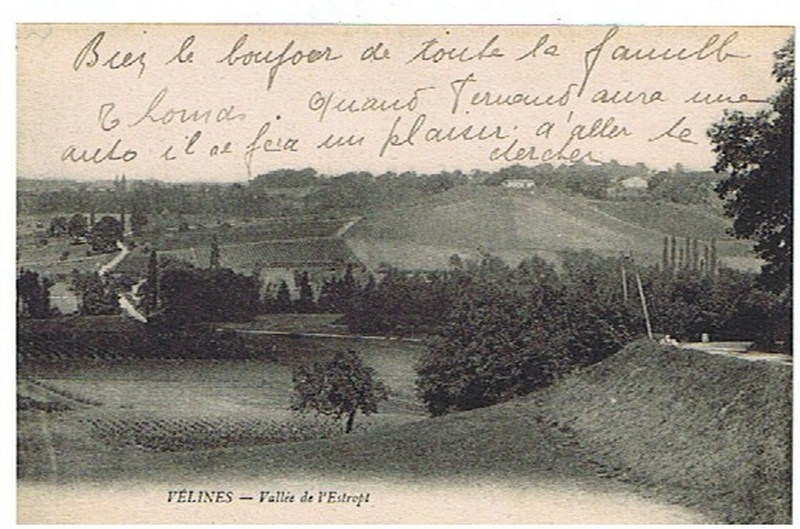 Bien le bonjour de toute la famille
Thomas. Quand Fernand aura une
auto il se fera un plaisir d'aller te
chercher
VÉLINES — Vallée de l'Estropt